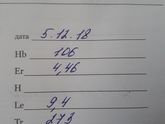 дата 5.12.18
Hb 106
Er 4,46
H
Le 9,4
Tr 273